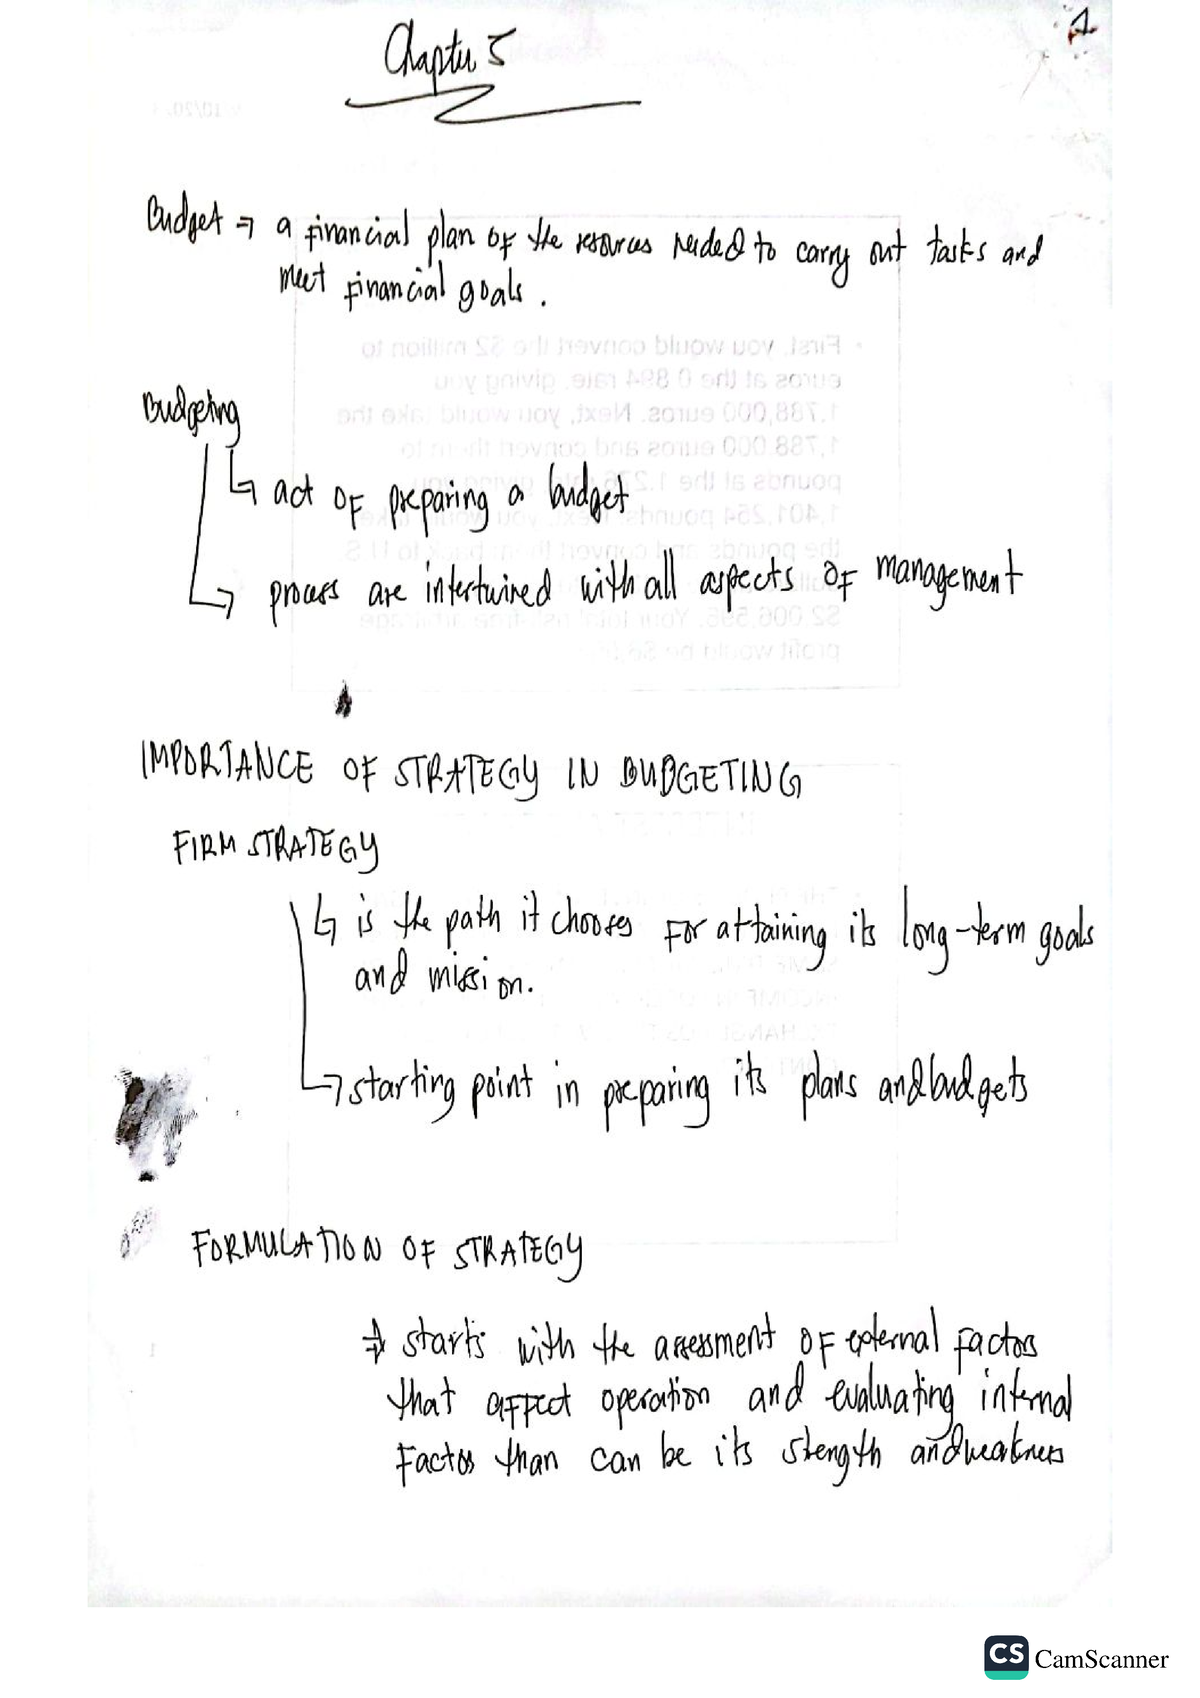 1
Chapter 5
Budget ⇒ a financial plan of the resources needed to carry out tasks and
meet financial goals.
Budgeting
↳ act of preparing a budget
↳ process are intertwined with all aspects of management
IMPORTANCE OF STRATEGY IN BUDGETING
FIRM STRATEGY
↳ is the path it chooses for attaining its long-term goals
and mission.
↳ starting point in preparing its plans and budgets
FORMULATION OF STRATEGY
→ starts with the assessment of external factors
that affect operation and evaluating internal
factors than can be its stength and weakness
CS CamScanner